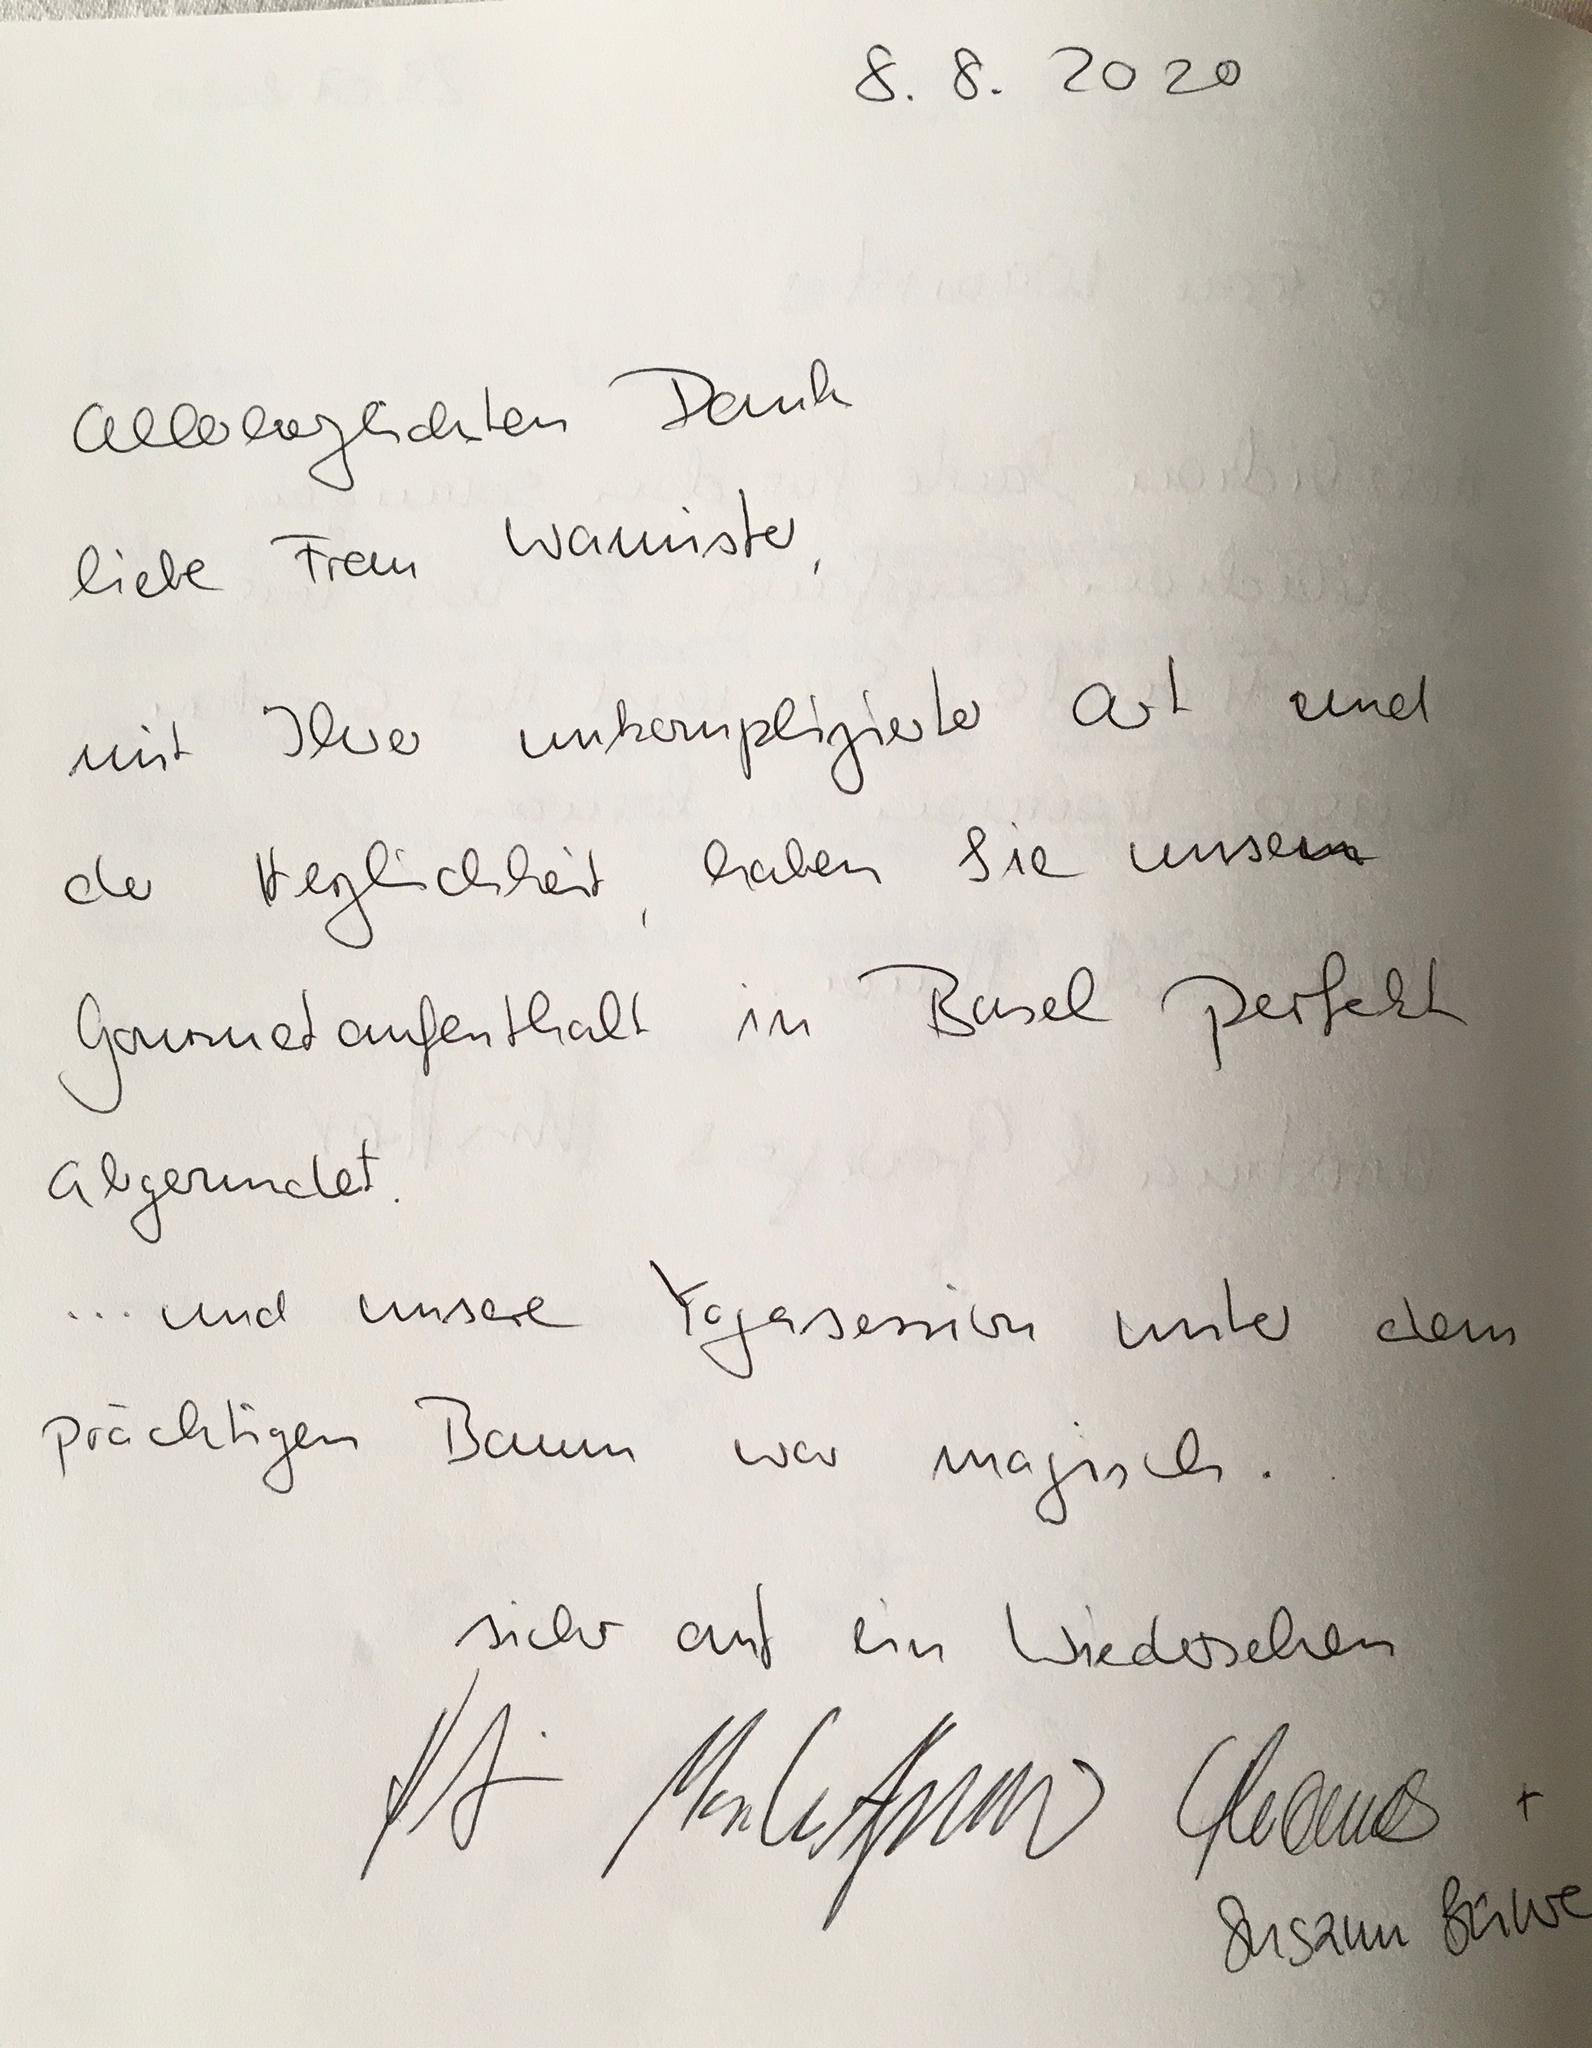 8. 8. 2020
Allerherzlichsten Dank
liebe Frau Wannister,
mit Ihrer unkomplizierter Art und
der Herzlichkeit, haben Sie unsern
Gourmetaufenthalt in Basel perfekt
abgerundet.
... und unsere Yogasession unter dem
prächtigen Baum war magisch.
sicher auf ein Wiedersehen
+
Susann